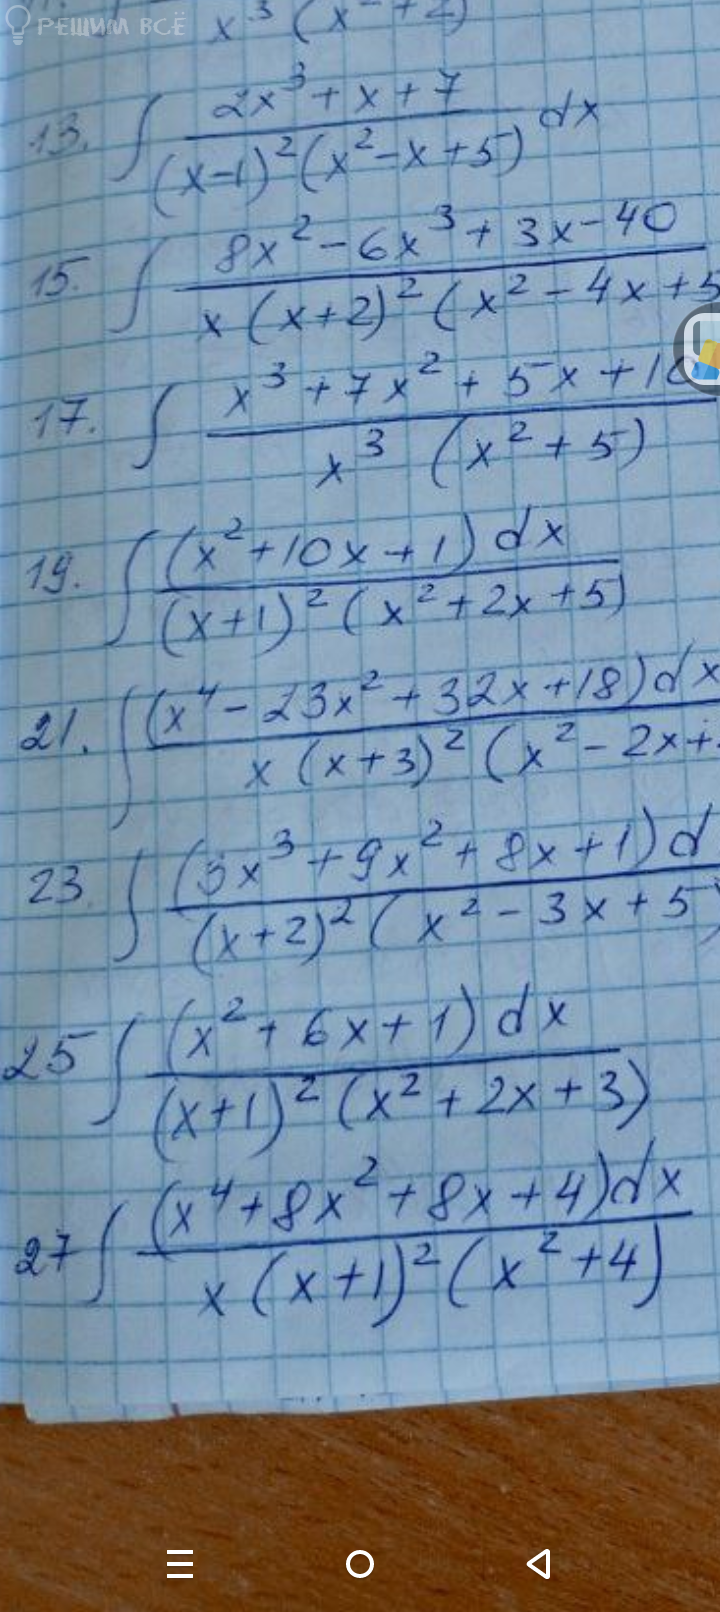 РЕШИМ ВСЁ
x³ (x² + 2)
13. ∫ (2x³ + x + 7) / ((x-1)² (x² - x + 5)) dx
15. ∫ (8x² - 6x³ + 3x - 40) / (x (x+2)² (x² - 4x + 5
17. ∫ (x³ + 7x² + 5x + 10) / (x³ (x² + 5))
19. ∫ (x² + 10x + 1) dx / ((x+1)² (x² + 2x + 5))
21. ∫ (x⁴ - 23x² + 32x + 18) dx / (x (x+3)² (x² - 2x +
23 ∫ (3x³ + 9x² + 8x + 1) d / ((x+2)² (x² - 3x + 5)
25 ∫ (x² + 6x + 1) dx / ((x+1)² (x² + 2x + 3))
27 ∫ (x⁴ + 8x² + 8x + 4) dx / (x (x+1)² (x² + 4))